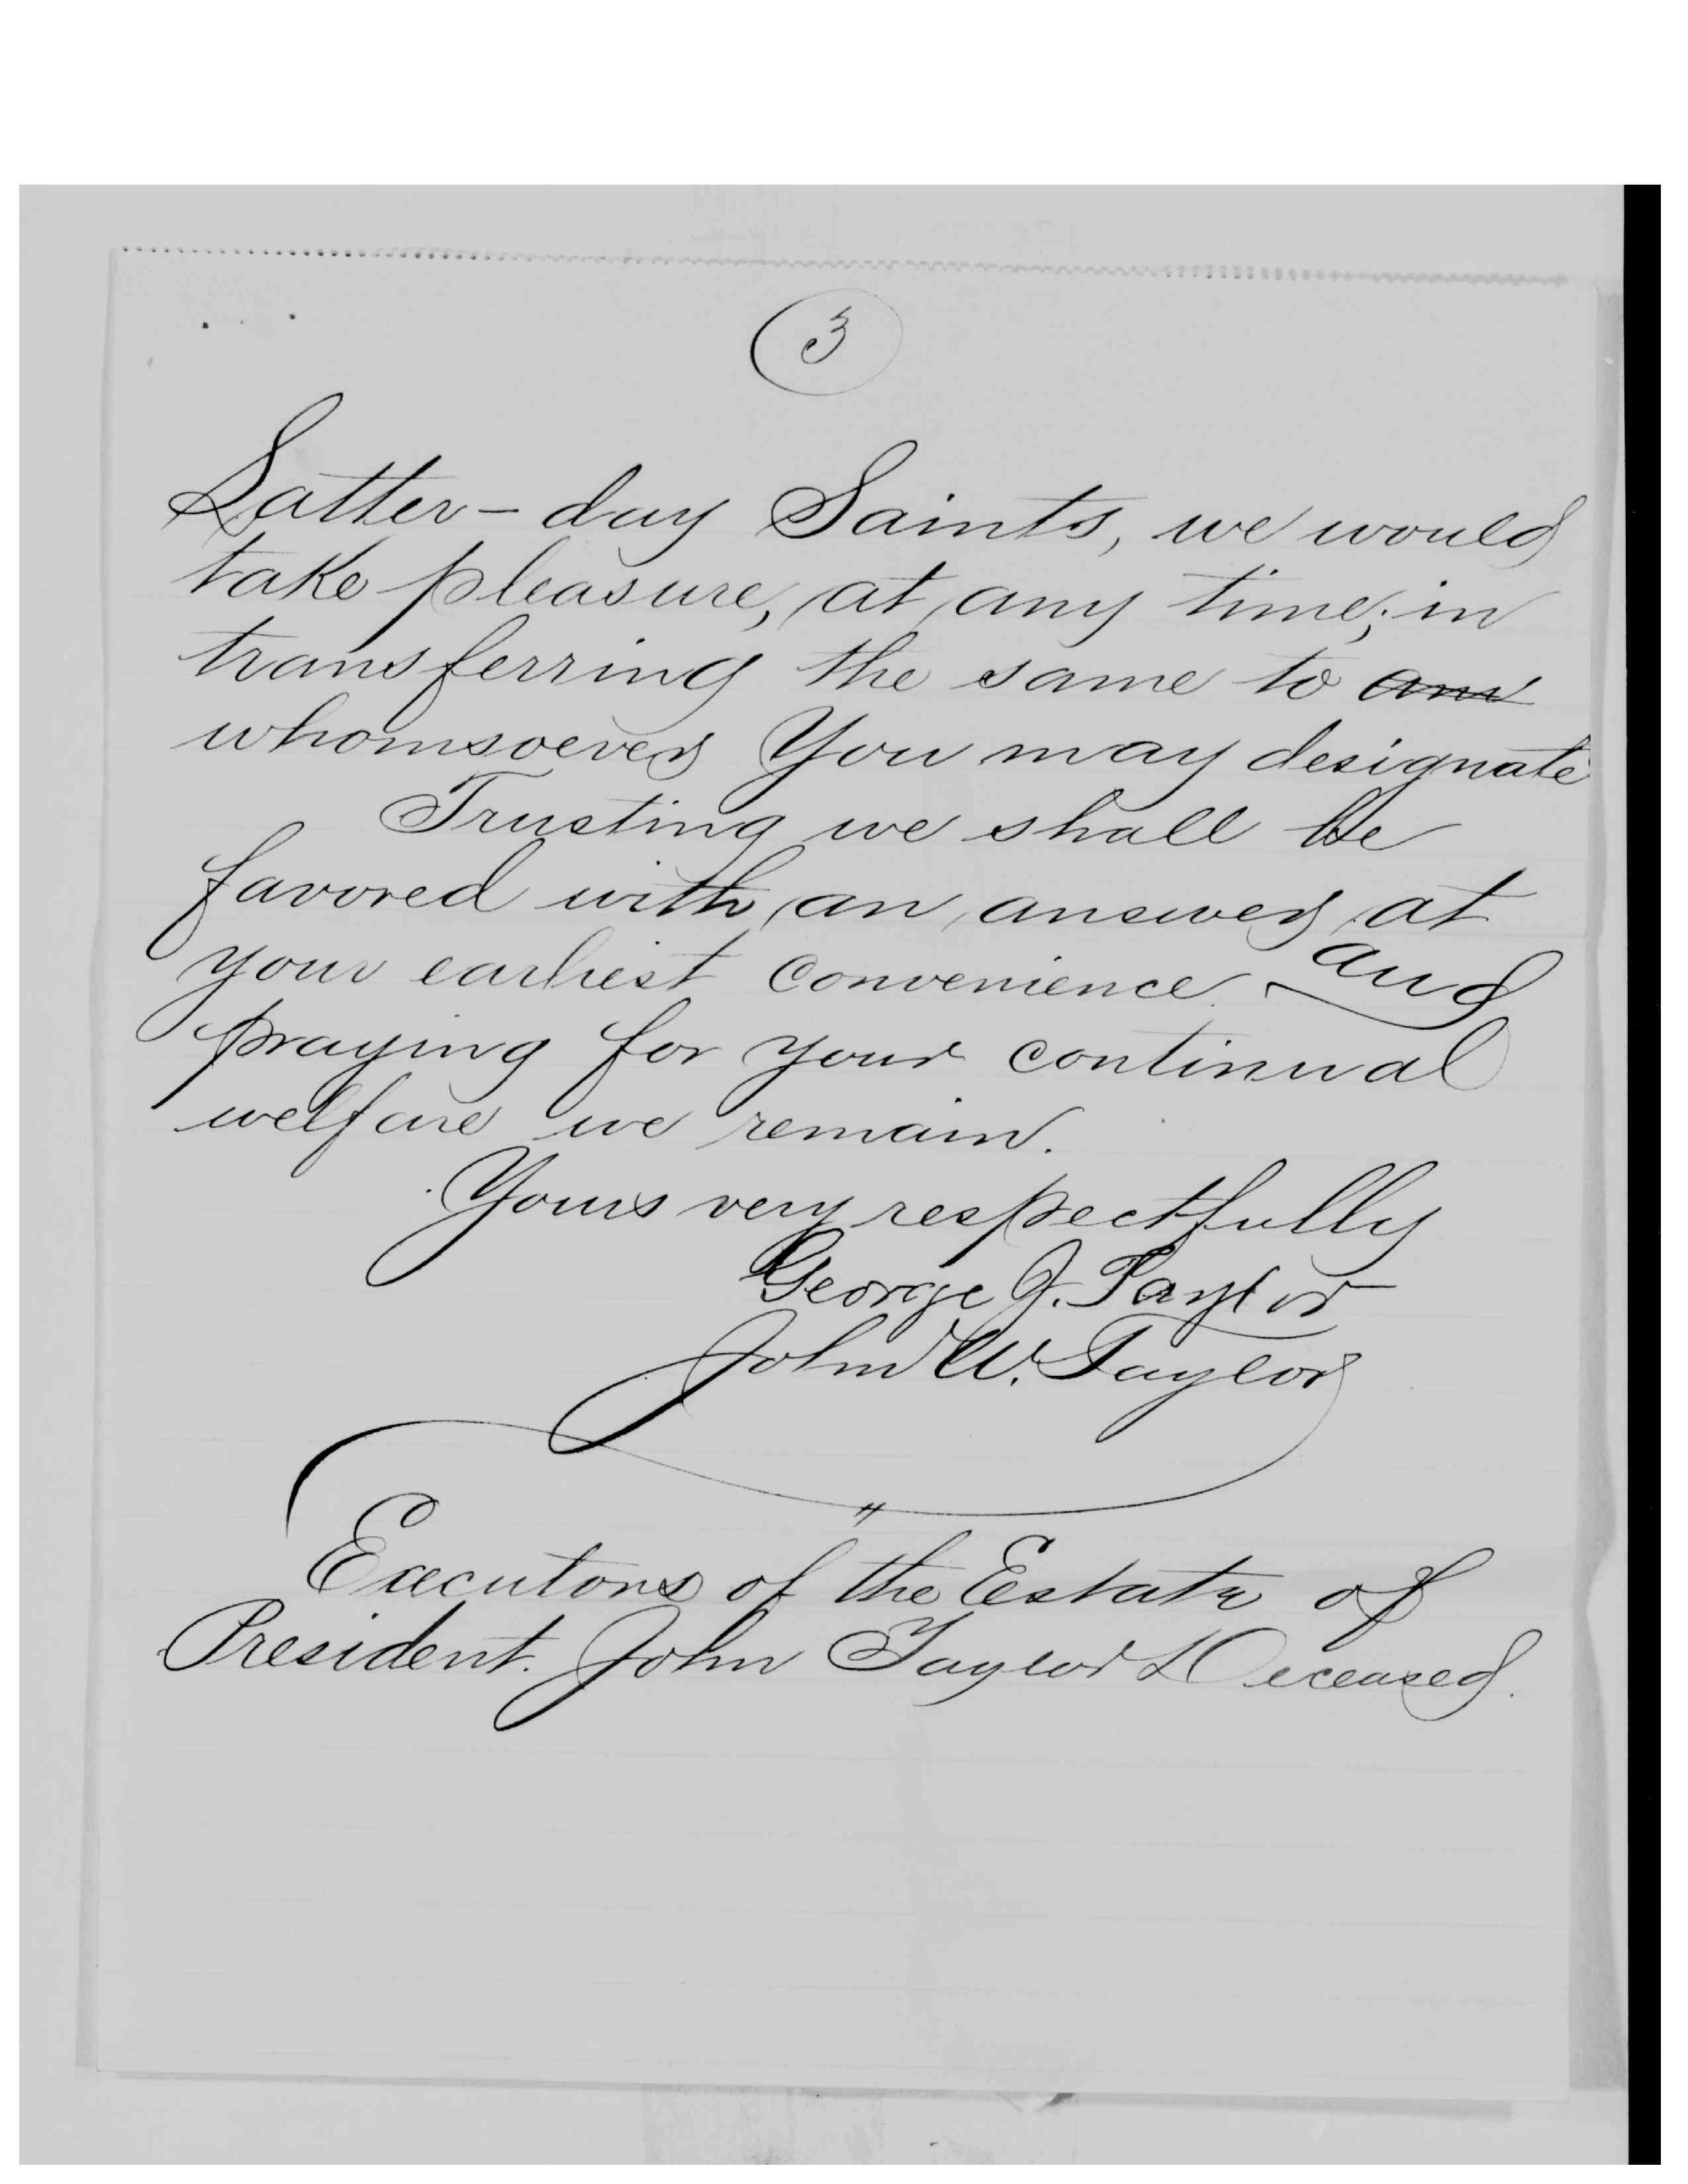 3
Latter-day Saints, we would
take pleasure, at any time, in
transferring the same to
whomsoever You may designate
Trusting we shall be
favored with an answer at
your earliest convenience and
praying for your continual
welfare we remain.
Yours very respectfully
George J. Taylor
John W. Taylor
Executors of the Estate of
President. John Taylor Deceased.